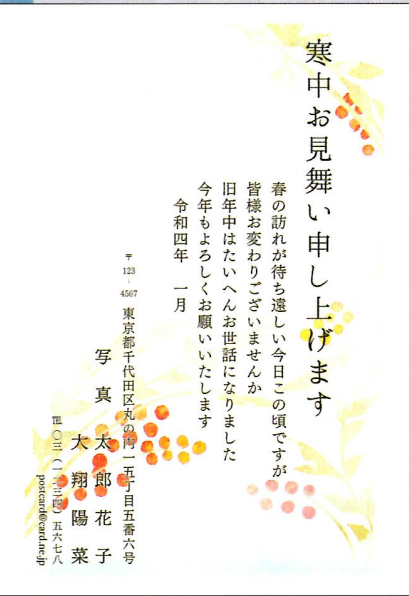 寒中お見舞い申し上げます
春の訪れが待ち遠しい今日この頃ですが
皆様お変わりございませんか
旧年中はたいへんお世話になりました
今年もよろしくお願いいたします
令和四年 一月
〒123-4567 東京都千代田区丸の内一五丁目五番六号
写真 太郎 花子
大翔 陽菜
℡〇三(一二三四)五六七八
postcard@card.ne.jp